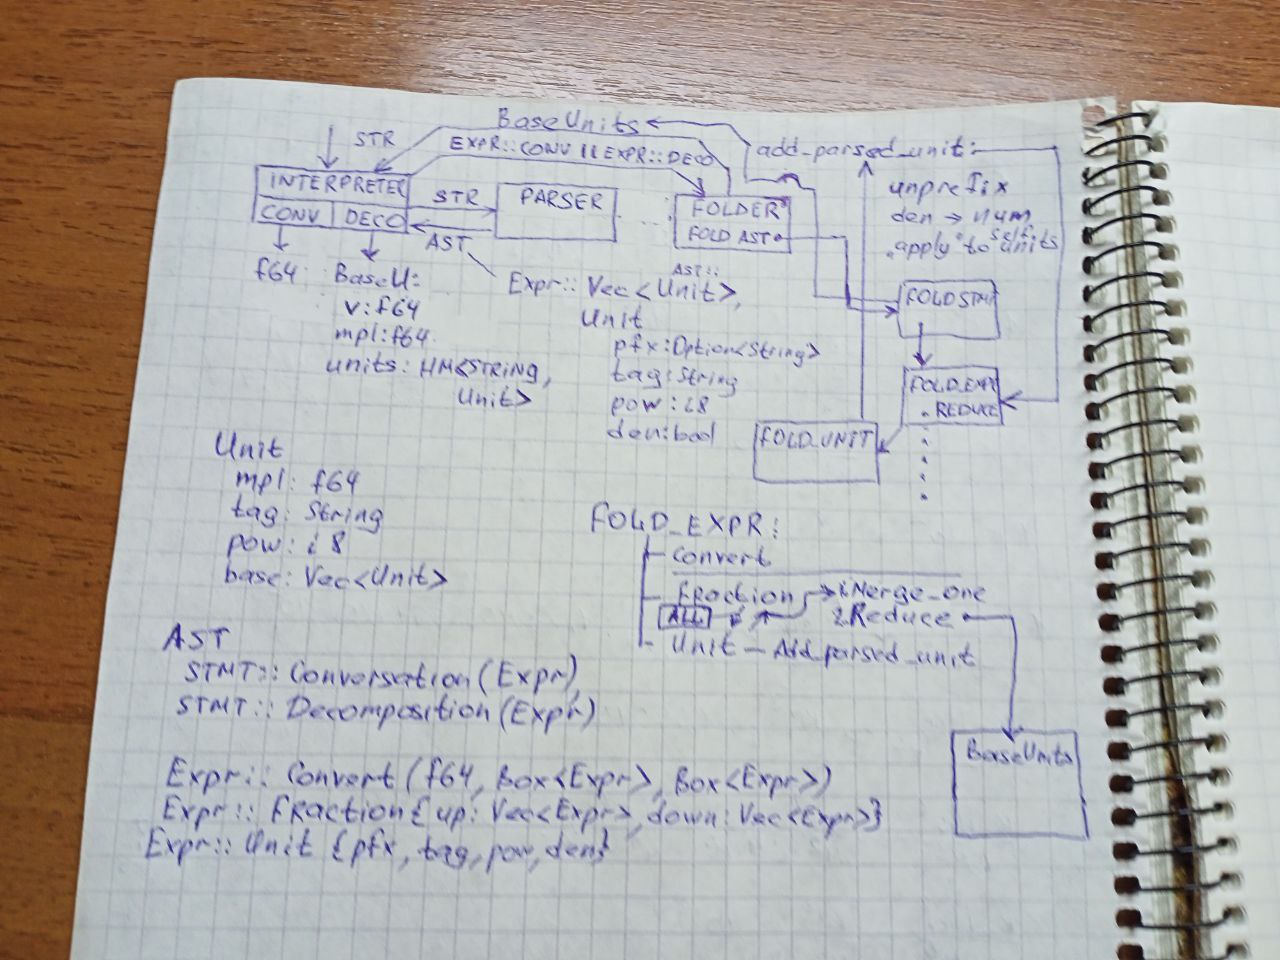 STR
BaseUnits
EXPR::CONV || EXPR::DECO
INTERPRETER
CONV DECO
STR
AST
PARSER
FOLDER
FOLD AST
add_parsed_unit:
unprefix
den → num
self
.apply to units
f64
BaseU:
v:f64
mpl:f64
units: HM<STRING,
Unit>
AST::
Expr:: Vec<Unit>,
Unit
pfx:Option<String>
tag:String
pow:i8
den:bool
FOLDSTMT
FOLD_EXPR
.REDUCE
FOLD_UNIT
Unit
mpl: f64
tag: String
pow: i8
base: Vec<Unit>
FOLD_EXPR:
Convert
Fraction → 1Merge_one
ALL 2Reduce
Unit — Add_parsed_unit
BaseUnits
AST
STMT:: Conversation(Expr),
STMT:: Decomposition(Expr)
Expr:: Convert(f64, Box<Expr>, Box<Expr>)
Expr:: Fraction{up: Vec<Expr>, down: Vec<Expr>}
Expr:: Unit {pfx, tag, pow, den}